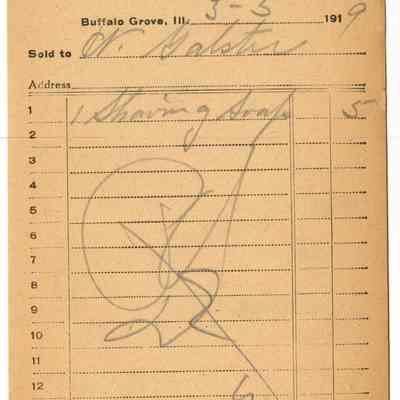 Buffalo Grove, Ill. 3-3 1919
Sold to N. Galster
Address
1 1 Shaving Soap 5
2
3
4
5
6
7
8
9
10
11
12